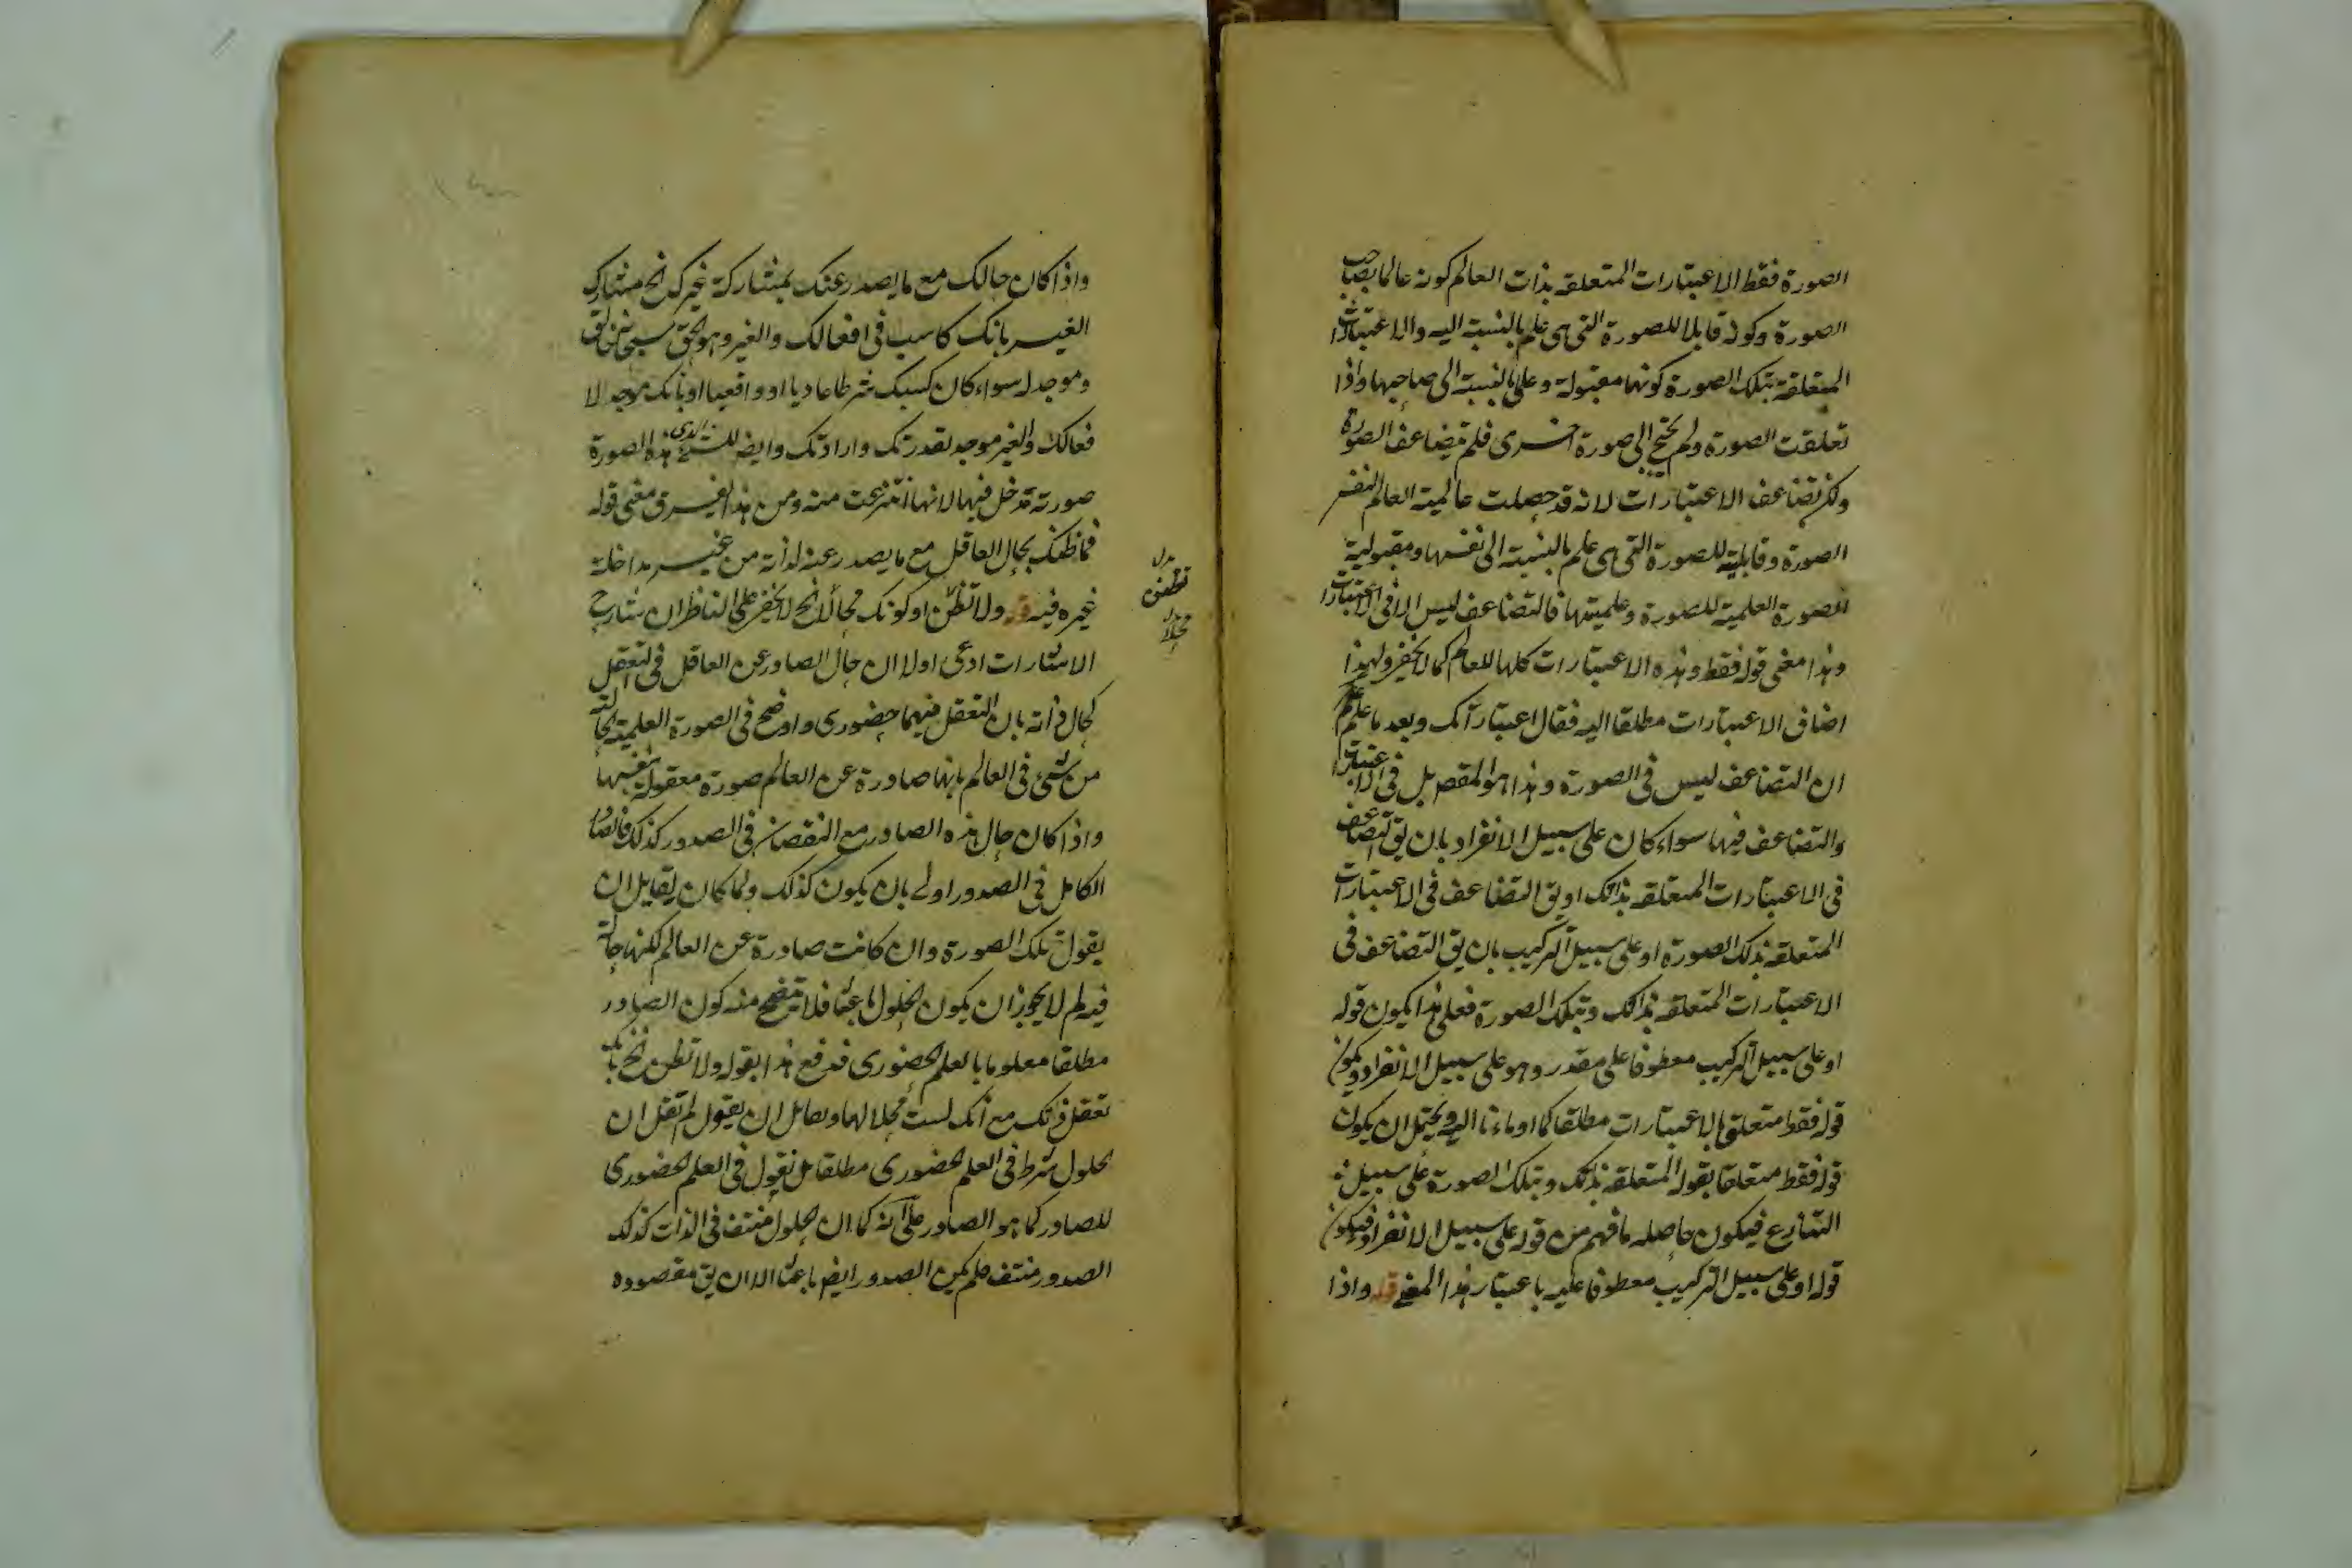 الصورة فقط الاعتبارات المتعلقه بذات العالم كونه عالما بصاحب
الصورة وكونه قابلا للصورة التى هى علم بالنسبة اليه والاعتبارات
المتعلقة بتلك الصورة كونها مقبولة وعلما بالنسبة الى صاحبها واذا
تعلقت الصورة ولم يحتج الى صورة اخرى فلم يتضاعف الصورة
ولكن تضاعف الاعتبارات لانه قد حصلت عالمية العالم لنفس
الصورة وقابليته للصورة التى هى علم بالنسبة الى نفسها ومقبولية
الصورة العلمية للصورة وعلميتها فالتضاعف ليس الا فى الاعتبارات
وهذا معنى قوله فقط وهذه الاعتبارات كلها للعالم كما لا يخفى ولهذا
اضاف الاعتبارات مطلقا اليه فقال اعتباراتك وبعد ما علم
ان التضاعف ليس فى الصورة وهذا هو المقصر بل فى الاعتبارات
والتضاعف فيها سواء كان على سبيل الانفراد بان يق التضاعف
فى الاعتبارات المتعلقه بذاتك او يق التضاعف فى الاعتبارات
المتعلقه بتلك الصورة او على سبيل التركيب بان يق التضاعف فى
الاعتبارات المتعلقه بذاتك وبتلك الصورة فعلى هذا يكون قوله
او على سبيل التركيب معطوفا على مقدر وهو على سبيل الانفراد ويكون
قوله فقط متعلقا بالاعتبارات مطلقا كما اومأنا اليه ويحتمل ان يكون
قوله فقط متعلقا بقوله المتعلقه بذاتك وبتلك الصورة على سبيل
التنازع فيكون حاصله ما فهم من قوله على سبيل الانفراد فيكون
قوله او على سبيل التركيب معطوفا عليه باعتبار هذا المعنى قوله واذا
واذا كان حالك مع ما يصدر عنك بمشاركة غيرك الخ مشاركة
الغير بانك كاسب فى افعالك والغير وهو الحق سبحانه خالق
وموجد له سواء كان كسبك شرطا عاديا او واقعيا او بانك موجد لا
فعالك والغير موجد لقدرتك وارادتك وايضا للشئ الذى هذه الصورة
صورته تدخل فيها لانها انتزعت منه ومن هذا يفسر معنى قوله
فما ظنك بحال العاقل مع ما يصدر عنه لذاته من غير مداخلة
غيره فيه قوله ولا تظنن او كونك محالا الخ لا يخفى على الناظر ان شارح
الاشارات ادعى اولا ان حال الصادر عن العاقل فى التعقل
كحال ذاته بان التعقل فيهما حضورى واوضح فى الصورة العلمية الحالة
من شئ فى العالم بانها صادرة عن العالم صورة معقولة بنفسها
واذا كان حال هذه الصادر مع النقصان فى الصدور كذلك فالصادر
الكامل فى الصدور اولى بان يكون كذلك ولما كان لقايل ان
يقول تلك الصورة وان كانت صادرة عن العالم لكنها حالة
فيه لم لا يجوز ان يكون الحلول باعثا فلا يتضح منه كون الصادر
مطلقا معلوما بالعلم الحضورى فدفع هذا بقوله ولا تظن الخ بانك
تعقل ذاتك مع انك لست محلا لها ولقائل ان يقول لم تقل ان
الحلول شرط فى العلم الحضورى مطلقا بل نقول فى العلم الحضورى
للصادر كما هو الصادر على انه كما ان الحلول منتف فى الذات كذلك
الصدور منتف فلم يكن الصدور ايضا باعثا الا ان يق مقصوده
بدل
تظنن
بدل
محلا